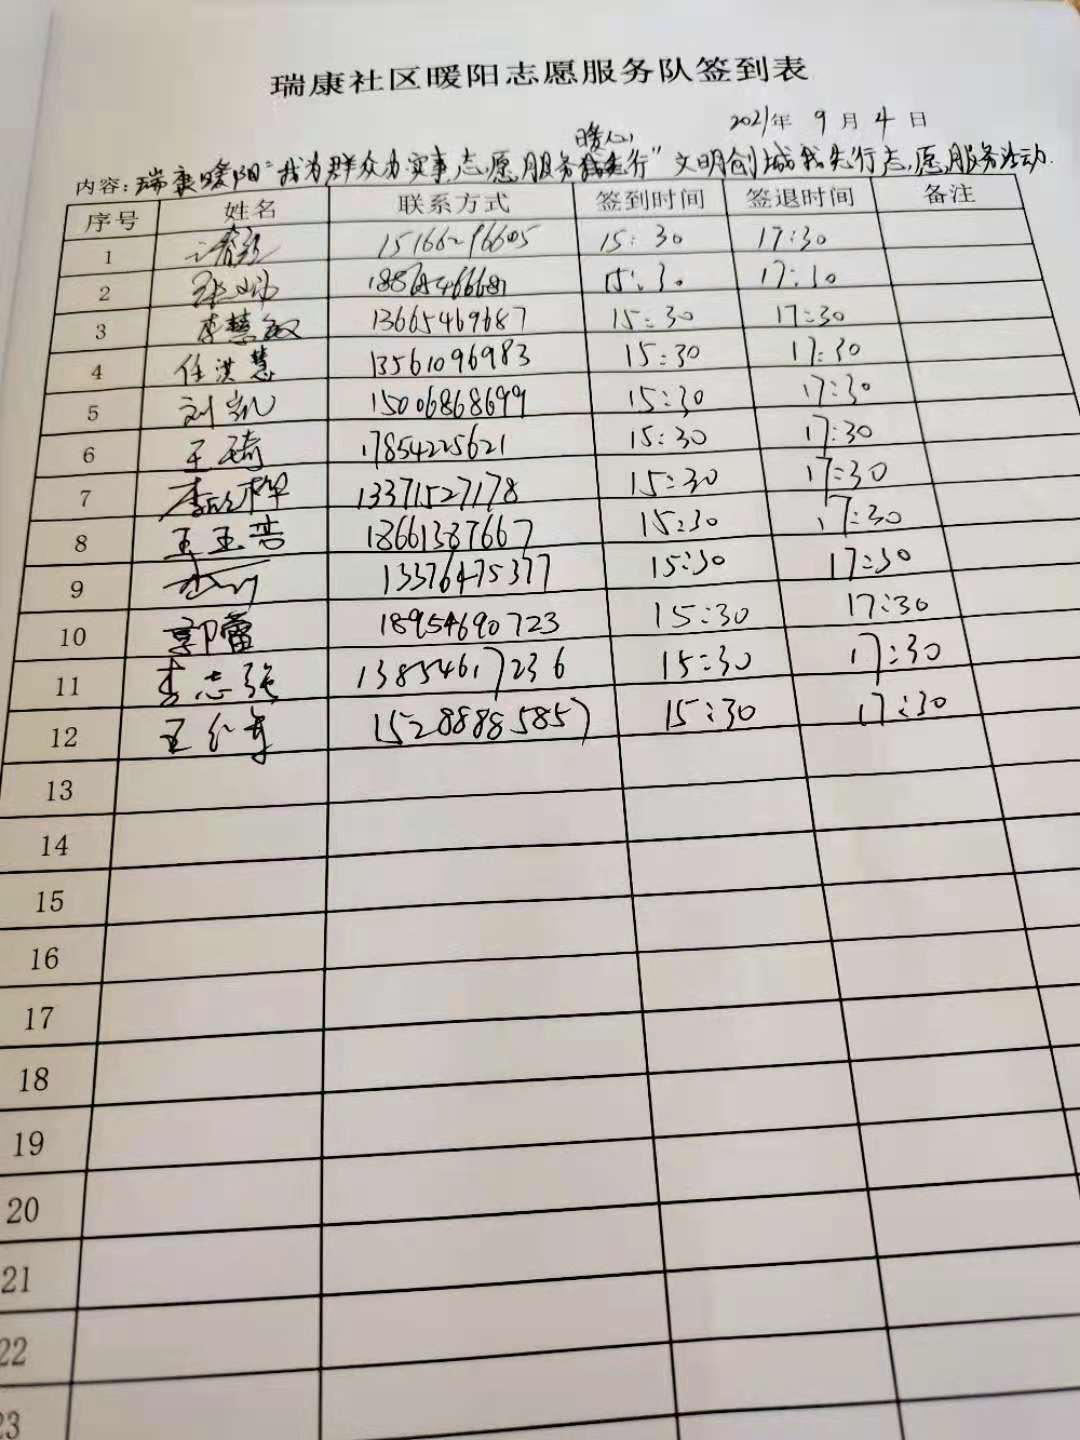 瑞康社区暖阳志愿服务队签到表
2021年 9 月 4 日
暖心
内容：瑞康暖阳"我为群众办实事，志愿服务行"文明创城我先行志愿服务活动
序号 姓名 联系方式 签到时间 签退时间 备注
1 15166296605 15:30 17:30
2 15:30 17:30
3 李慧敏 13665469687 15:30 17:30
4 任洪慧 13561096983 15:30 17:30
5 刘凯 15006868699 15:30 17:30
6 王琦 17854225621 15:30 17:30
7 李欣桦 13371527178 15:30 17:30
8 王玉浩 18661387667 15:30 17:30
9 13376475377 15:30 17:30
10 郭蕾 18954690723 15:30 17:30
11 李志强 13854617236 15:30 17:30
12 王 15288885857 15:30 17:30
13
14
15
16
17
18
19
20
21
22
23